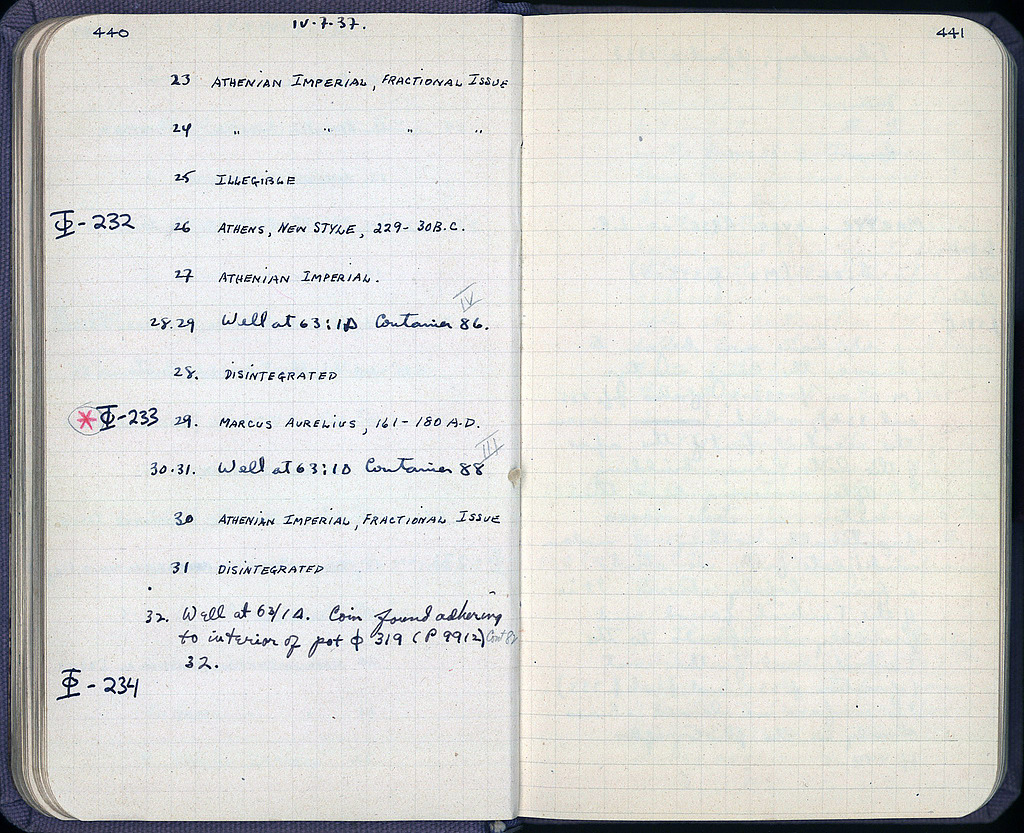 440
IV.7.37.
441
23 ATHENIAN IMPERIAL, FRACTIONAL ISSUE
24 " " " "
25 ILLEGIBLE
Φ-232 26 ATHENS, NEW STYLE, 229-30B.C.
27 ATHENIAN IMPERIAL.
IV
28.29 Well at 63:1Δ Container 86.
28. DISINTEGRATED
* Φ-233 29. MARCUS AURELIUS, 161-180 A.D.
III
30.31. Well at 63:1Δ Container 88
30 ATHENIAN IMPERIAL, FRACTIONAL ISSUE
31 DISINTEGRATED
32. Well at 63/1Δ. Coin found adhering
to interior of pot Φ 319 (P 9912)
32.
Φ-234